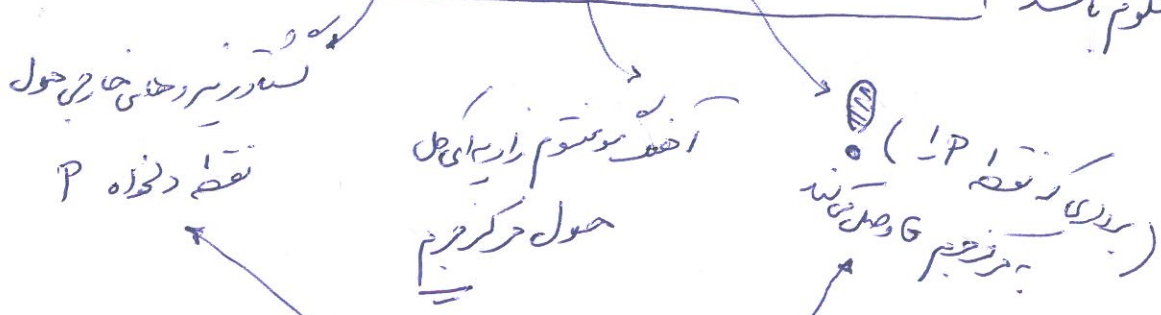 گشتاور نیروهای خارجی حول
نقطه دلخواه P
آهنگ مومنتوم زاویه‌ای کل
حول مرکز جرم
(برداری که نقطه P را
به مرکز جرم G وصل می‌کند)